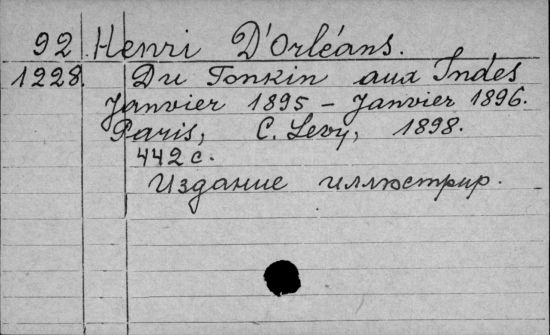 92 Henri D'Orléans.
1228. Du Tonkin aux Indes
Janvier 1895 - Janvier 1896.
Paris, C. Levy, 1898.
442 с.
Издание иллюстрир.